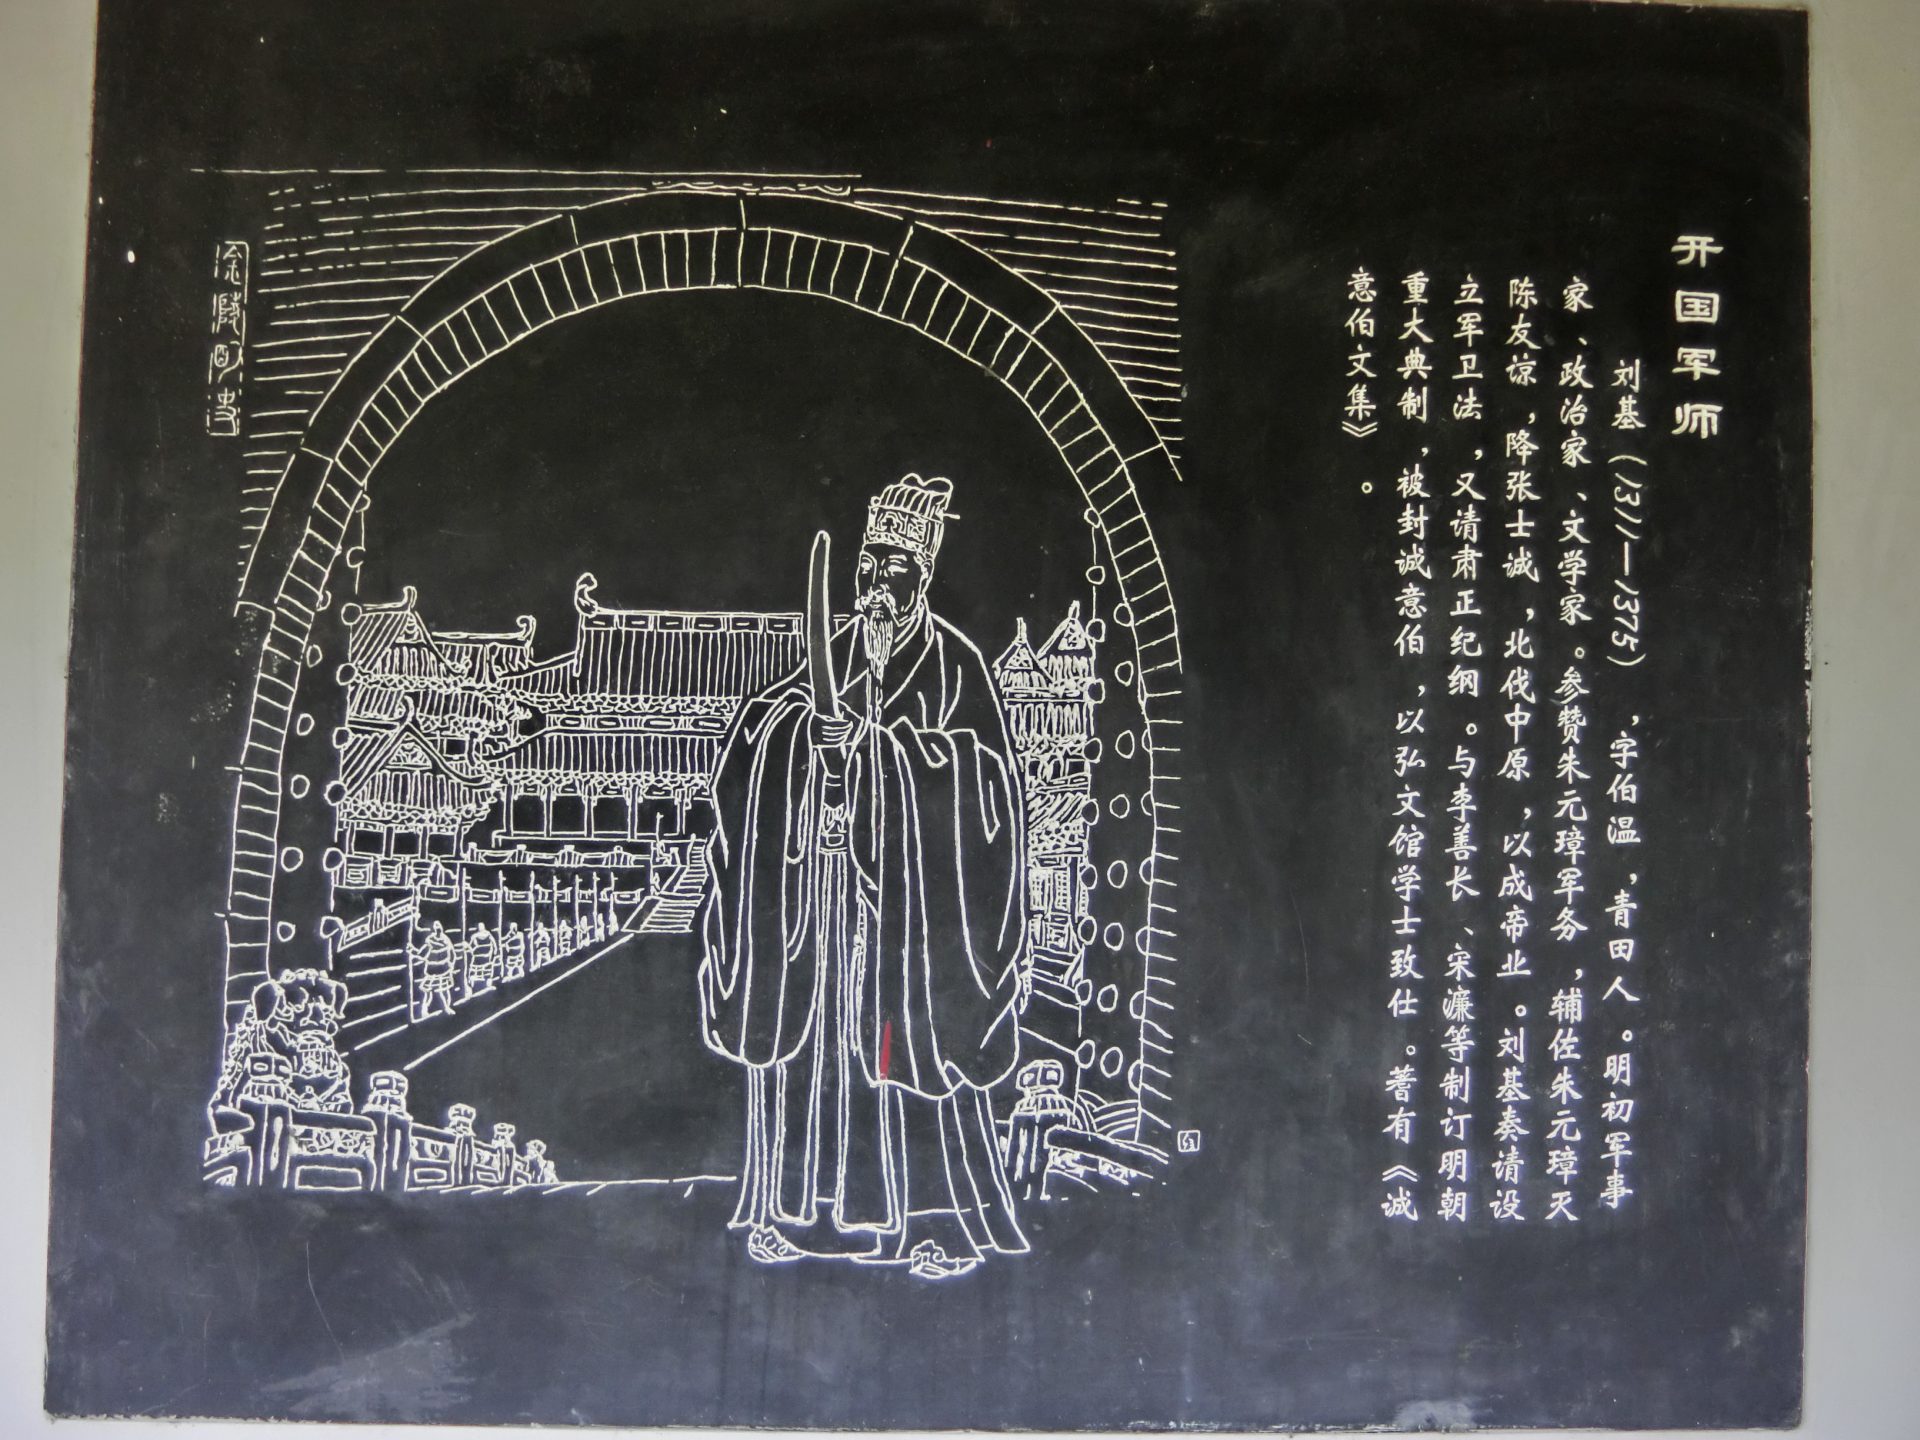 开国军师
刘基（1311—1375），字伯温，青田人。明初军事
家、政治家、文学家。参赞朱元璋军务，辅佐朱元璋灭
陈友谅，降张士诚，北伐中原，以成帝业。刘基奏请设
立军卫法，又请肃正纪纲。与李善长、宋濂等制订明朝
重大典制，被封诚意伯，以弘文馆学士致仕。著有《诚
意伯文集》。